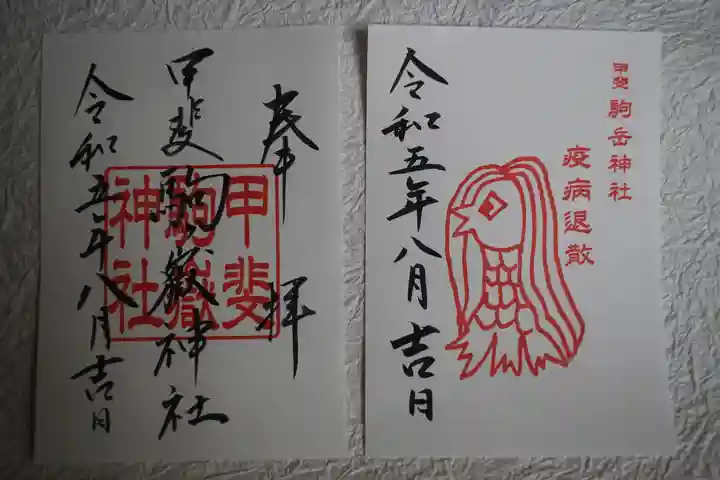 奉拝
甲斐駒嶽神社
令和五年八月吉日
甲斐
駒嶽
神社
甲斐駒岳神社
疫病退散
令和五年八月吉日